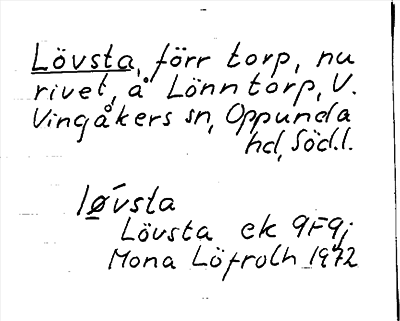 Lövsta, förr torp, nu
rivet, å Lönntorp, V.
Vingåkers sn, Oppunda
hd, Söd.l.
lǿ̲vsta
Lövsta ek 9F9j
Mona Löfroth 1972